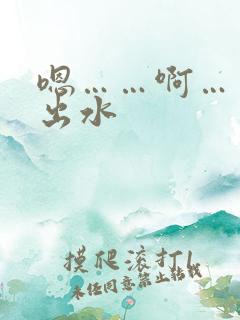 嗯……啊…
出水
摸爬滚打1
未经同意禁止转载